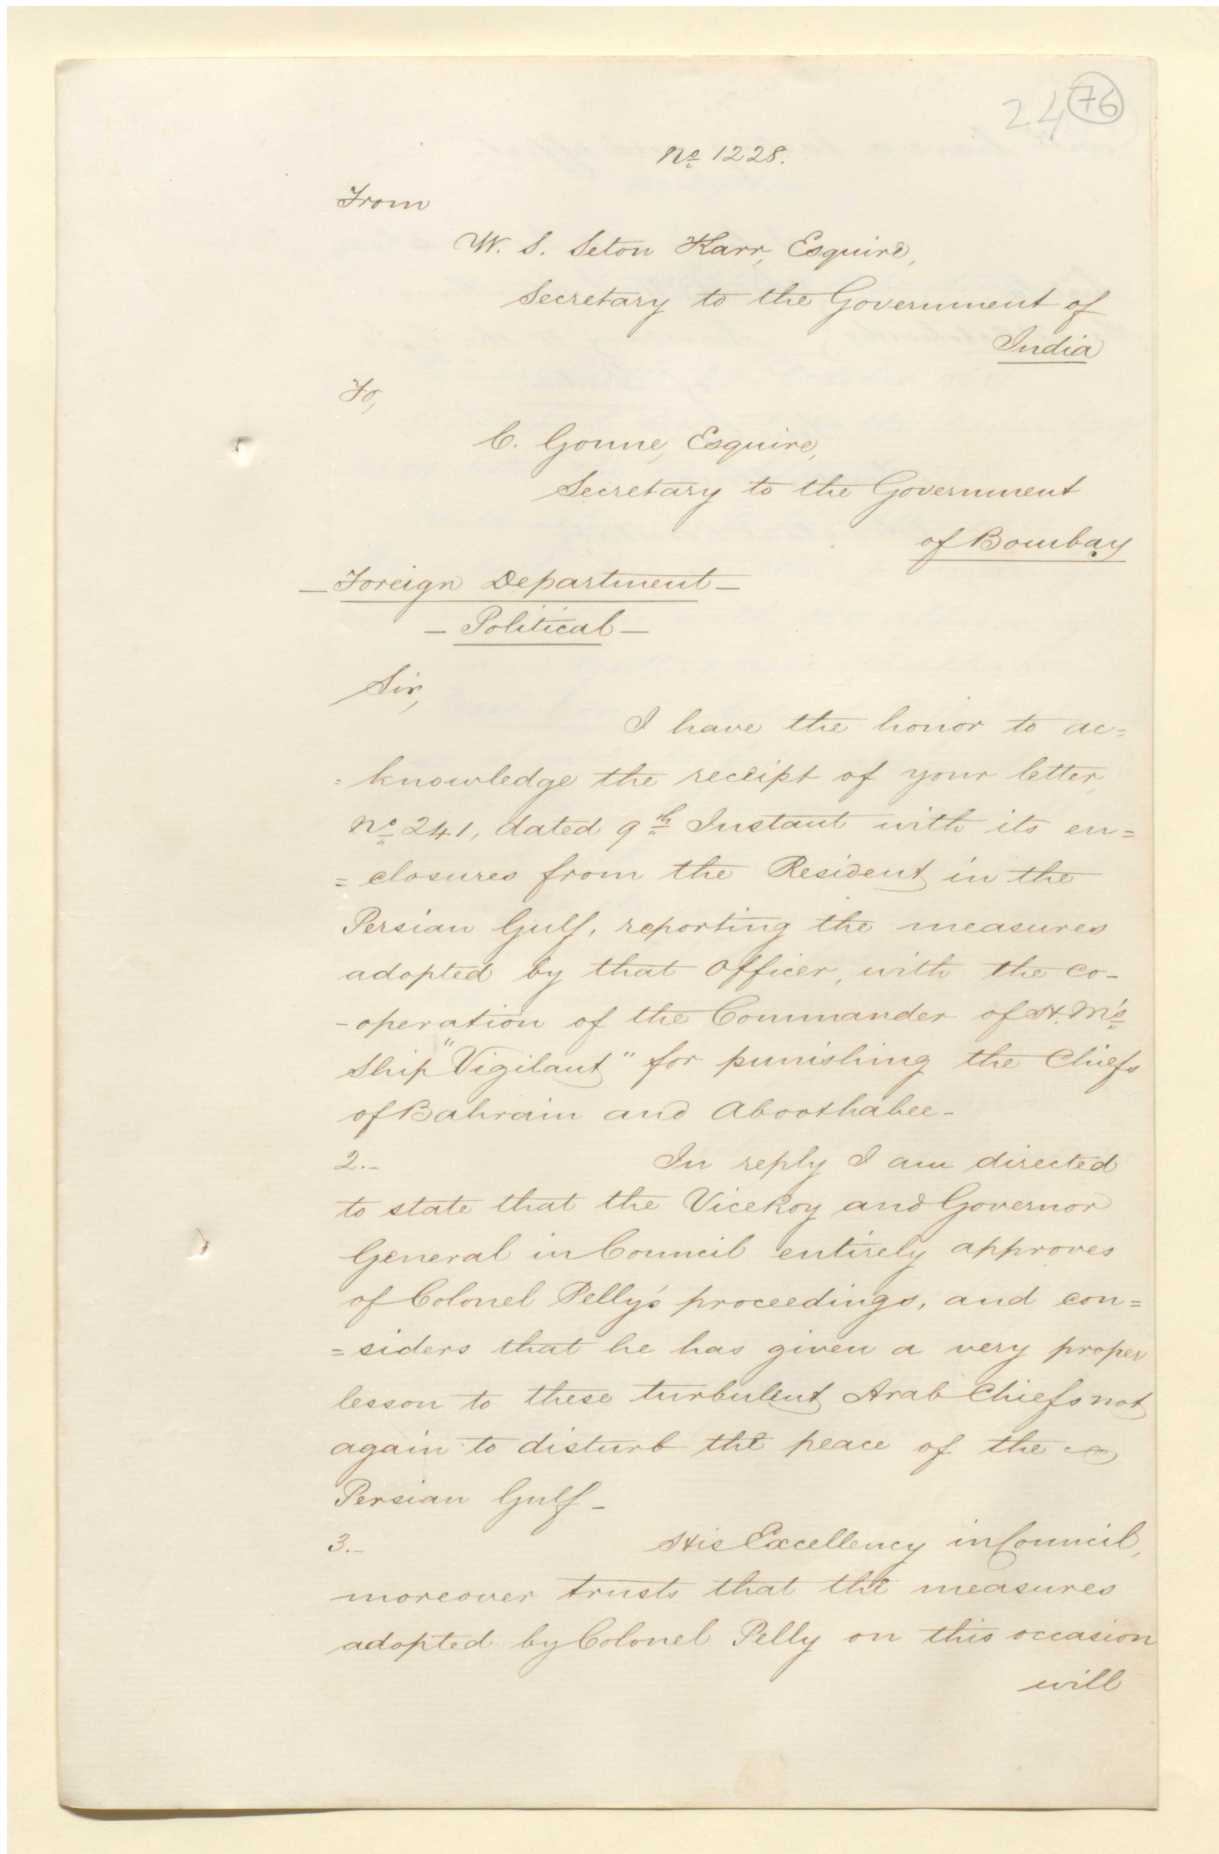 24 76
No 1228.
From
W. S. Seton Karr, Esquire,
Secretary to the Government of
India
To,
C. Gonne, Esquire,
Secretary to the Government
of Bombay
— Foreign Department —
— Political —
Sir,
I have the honor to ac=
= knowledge the receipt of your letter,
No 241, dated 9th Instant with its en=
= closures from the Resident in the
Persian Gulf, reporting the measures
adopted by that Officer, with the co-
- operation of the Commander of H. M's
Ship "Vigilant" for punishing the Chiefs
of Bahrain and Aboothabee -
2.- In reply I am directed
to state that the ViceRoy and Governor
General in Council entirely approves
of Colonel Pelly's proceedings, and con=
= siders that he has given a very proper
lesson to these turbulent Arab Chiefs not
again to disturb the peace of the
Persian Gulf -
3.- His Excellency in Council,
moreover trusts that the measures
adopted by Colonel Pelly on this occasion
will